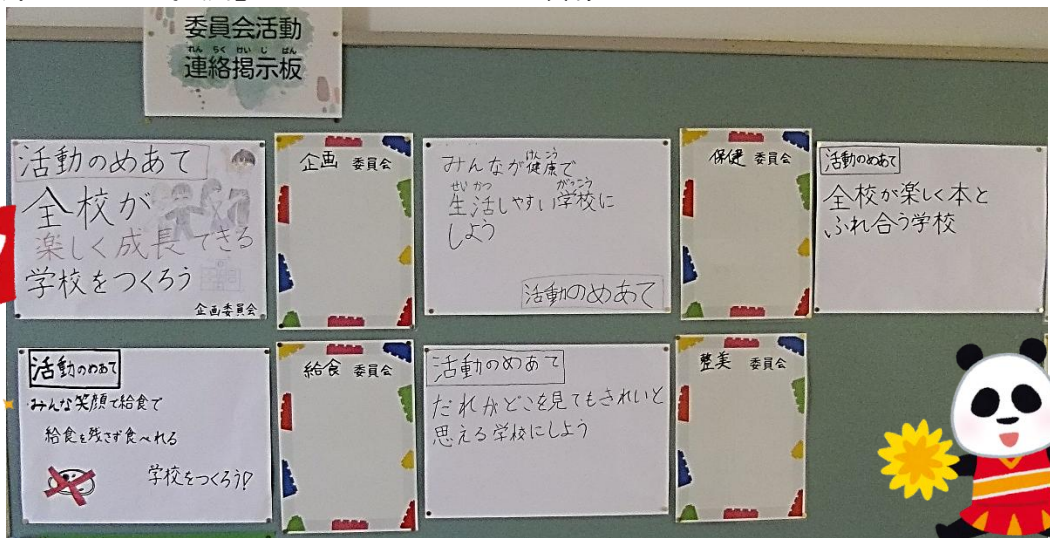 委員会活動
れんらくけいじばん
連絡掲示板
活動のめあて
全校が
楽しく成長できる
学校をつくろう
企画委員会
企画 委員会
けんこう
みんなが健康で
せいかつ がっこう
生活しやすい学校に
しよう
活動のめあて
保健 委員会
活動のめあて
全校が楽しく本と
ふれ合う学校
活動のめあて
みんな笑顔で給食で
給食を残さず食べれる
学校をつくろう!
給食 委員会
活動のめあて
だれがどこを見てもきれいと
思える学校にしよう
整美 委員会